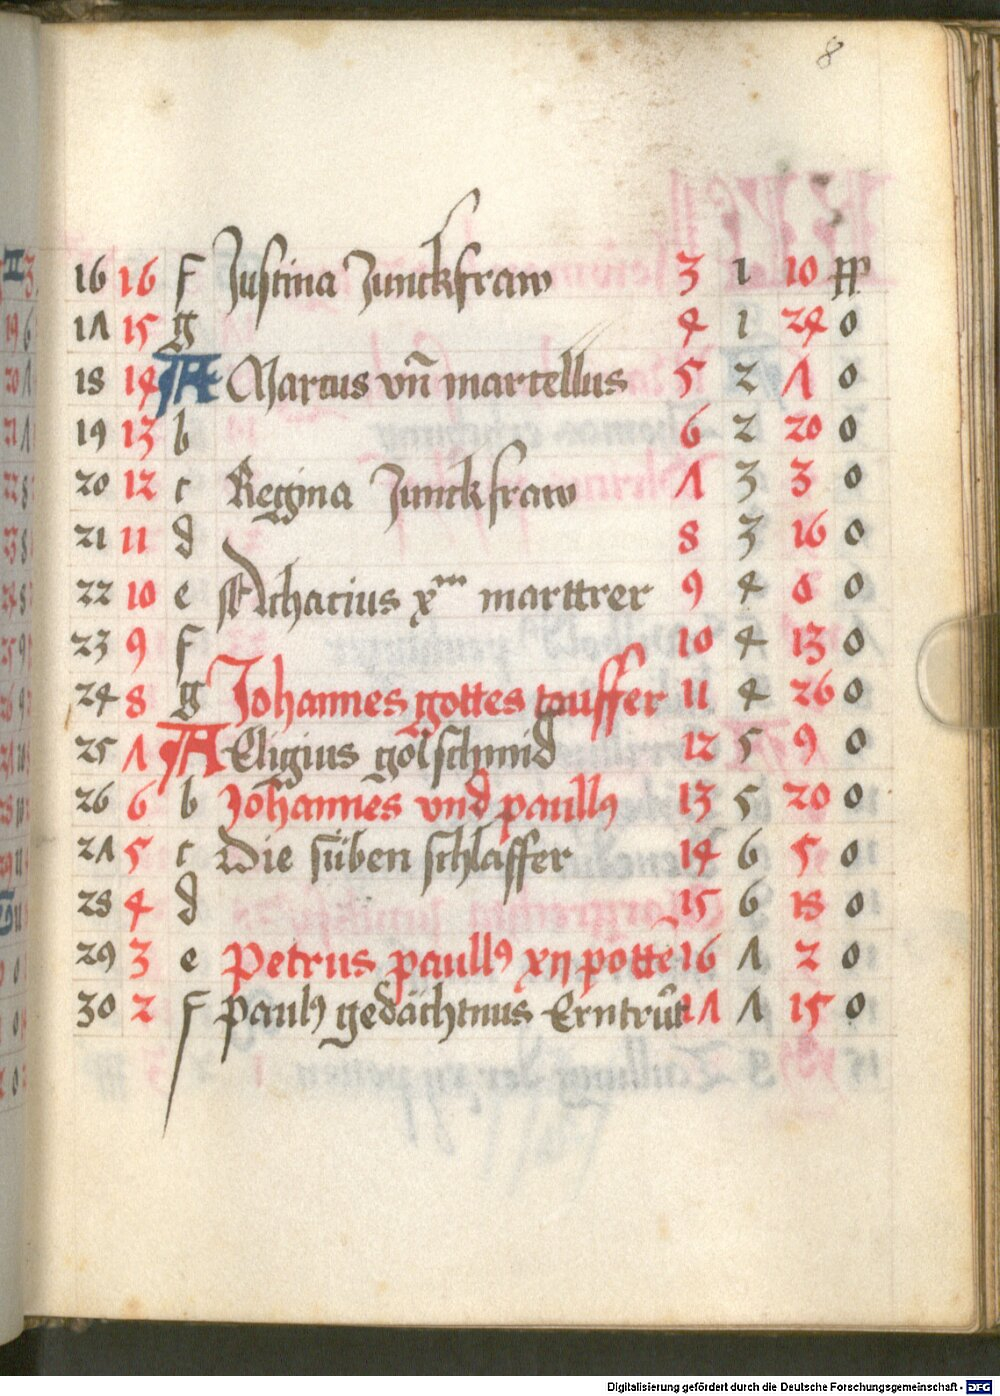 8
16 16 f Justina Junckfraw 3 1 10 pp
17 15 g 4 1 24 0
18 14 A Marcus vn̄ martellus 5 2 7 0
19 13 b 6 2 20 0
20 12 c Regina Junckfraw 7 3 3 0
21 11 d 8 3 16 0
22 10 e Achacius xᵐ marttrer 9 4 0 0
23 9 f 10 4 13 0
24 8 g Johannes gottes tauffer 11 4 26 0
25 7 A Eligius golschmid 12 5 9 0
26 6 b Johannes vnd paullꝯ 13 5 20 0
27 5 c Die süben schlaffer 14 6 5 0
28 4 d 15 6 18 0
29 3 e Petrus paullꝯ xij pottē 16 7 2 0
30 2 f paulꝯ gedächtnus Erntrůt 17 7 15 0
Digitalisierung gefördert durch die Deutsche Forschungsgemeinschaft - DFG